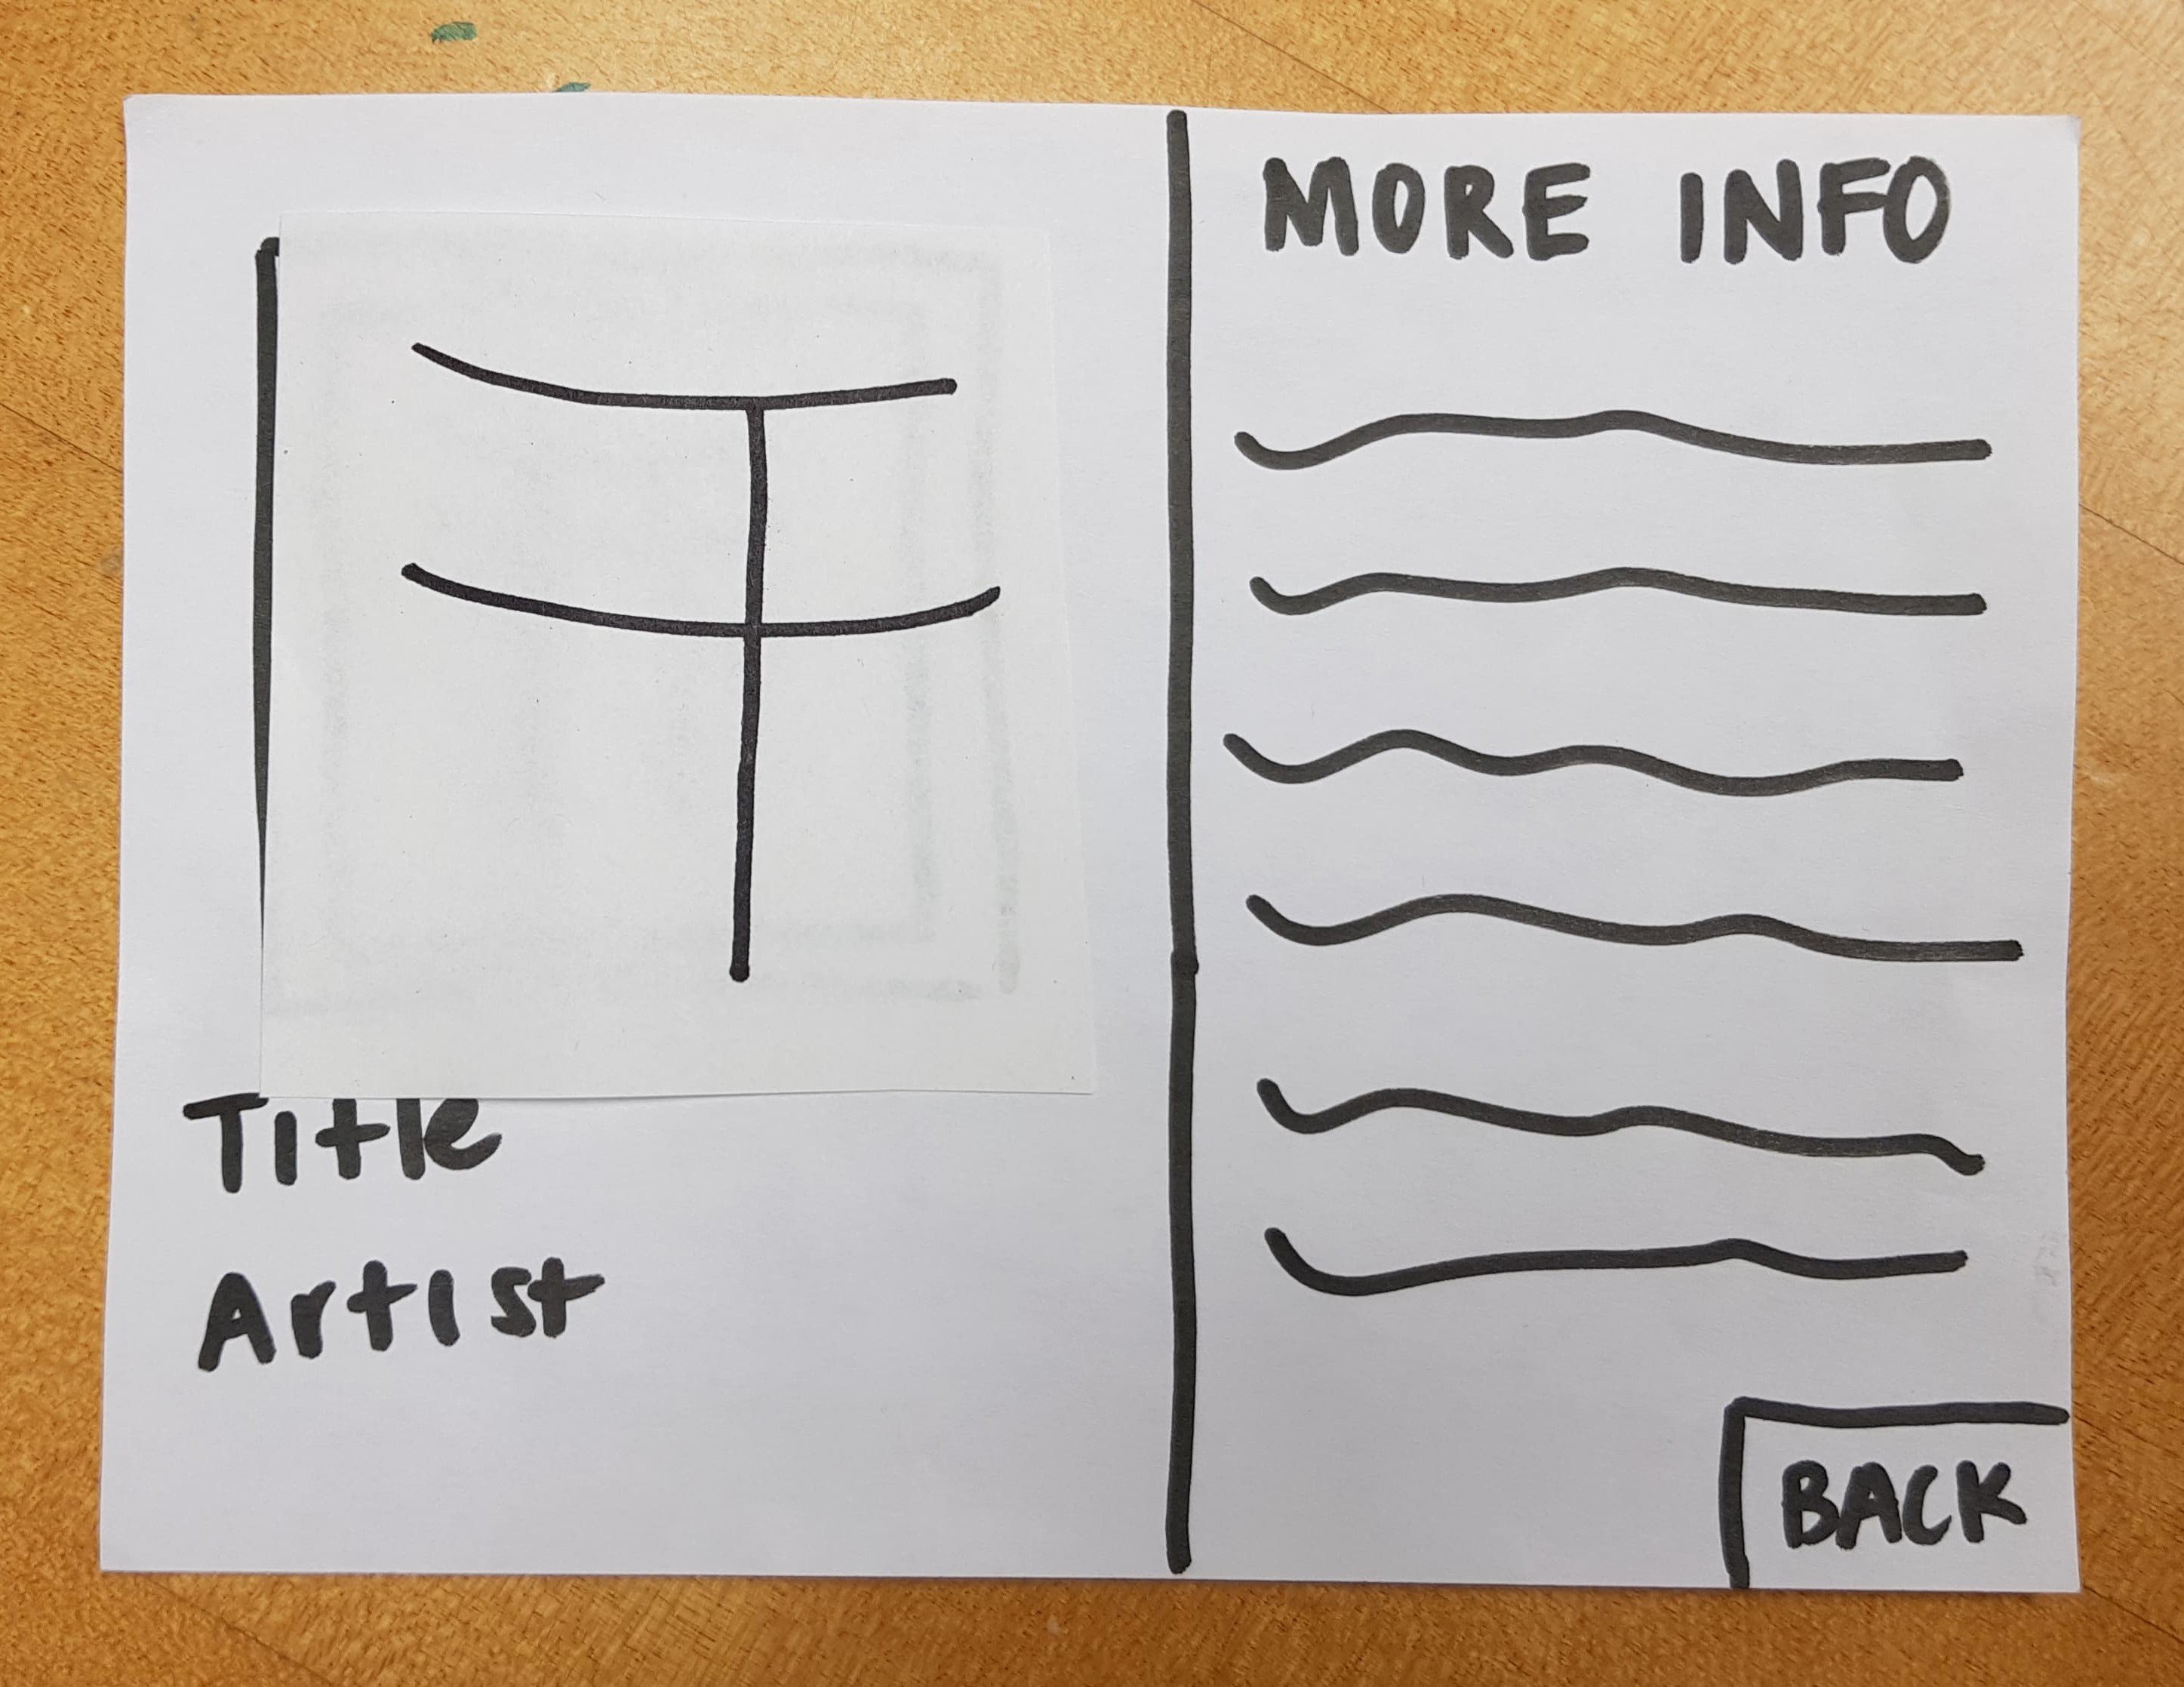 Title
Artist
MORE INFO
BACK